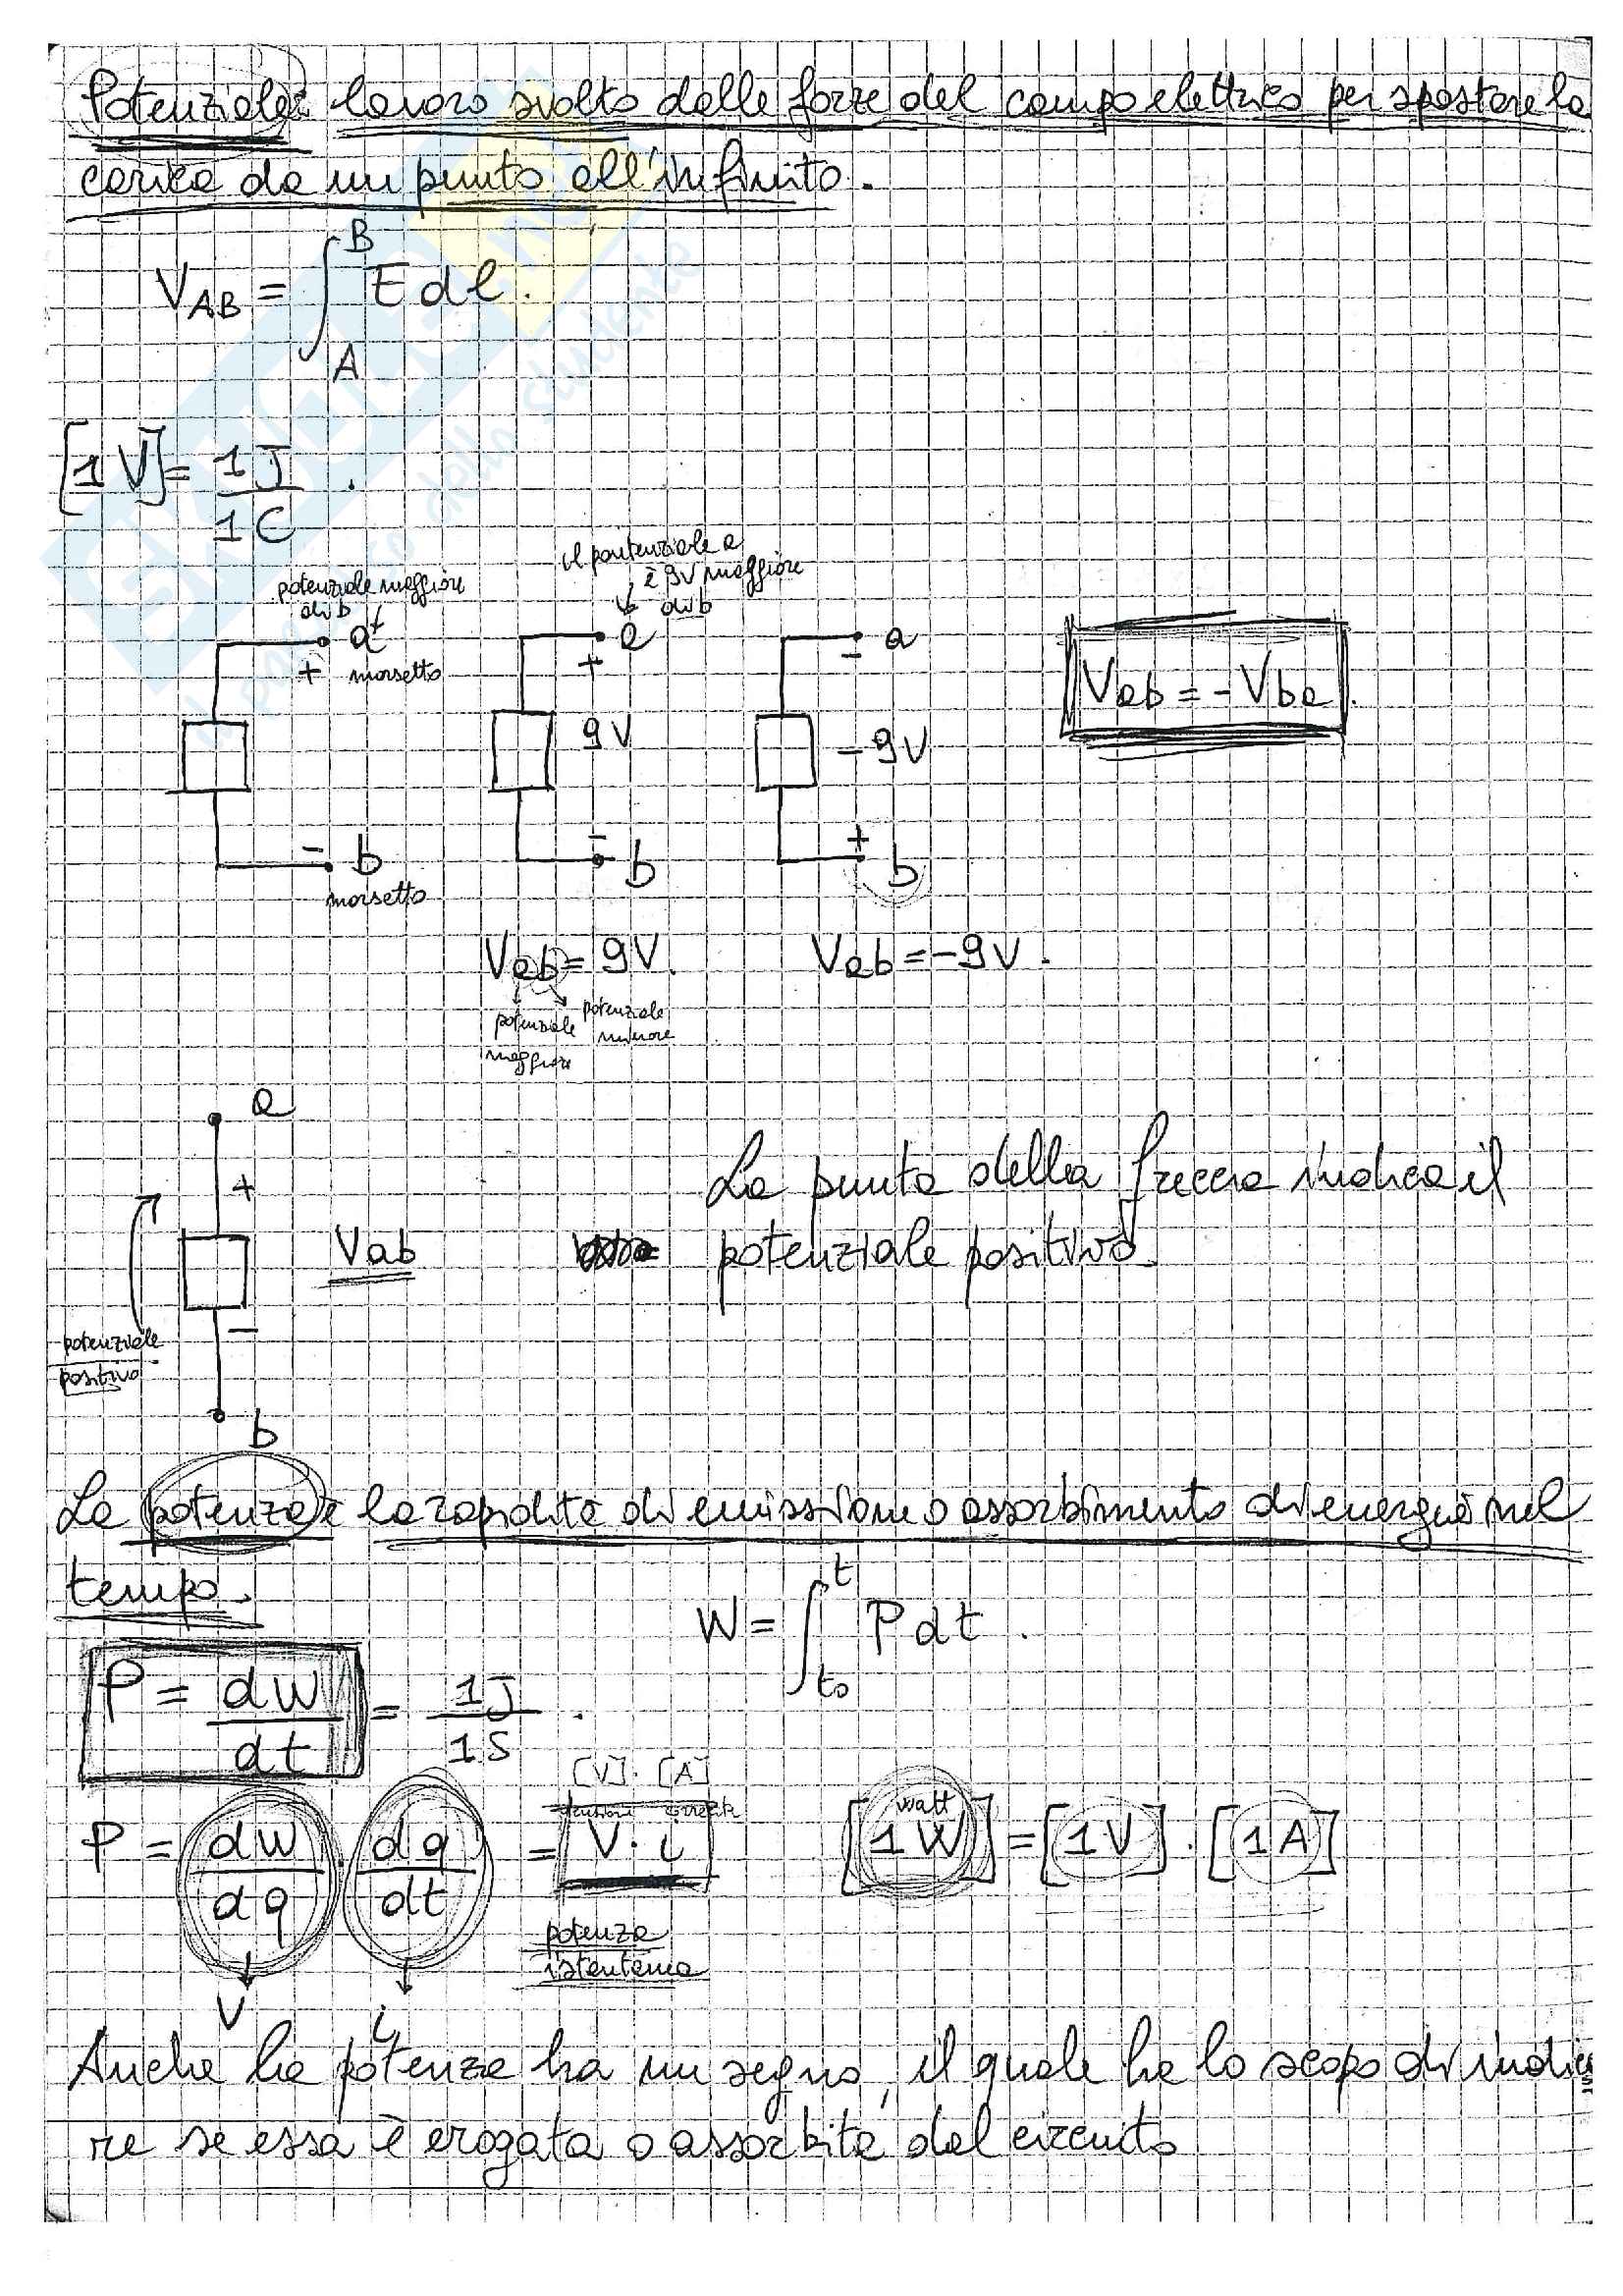 Potenziale: lavoro svolto dalle forze del campo elettrico per spostare la
carica da un punto all'infinito.
V_AB = ∫_A^B E dl.
[1 V] = 1J / 1C .
potenziale maggiore
di b
a
+ morsetto
- b
morsetto
il pontenziale a
è 9V maggiore
di b
a
+
9V
-
b
Vab = 9V.
potenziale
maggiore
potenziale
minore
a
-
-9V
+
b
Vab = -9V.
Vab = -Vba.
a
+
Vab
-
potenziale
positivo
b
La punta della freccia indica il
potenziale positivo.
La potenza è la rapidità di emissione o assorbimento di energia nel
tempo.
W = ∫_{t0}^{t} P dt .
P = dW/dt = 1J / 1S .
[V] . [A]
tensione corrente
P = dW/dq . dq/dt = V . i
V
i
potenza
istantanea
watt
[1W] = [1V] . [1A]
Anche la potenza ha un segno, il quale ha lo scopo di indica
re se essa è erogata o assorbita dal circuito
dalla studente